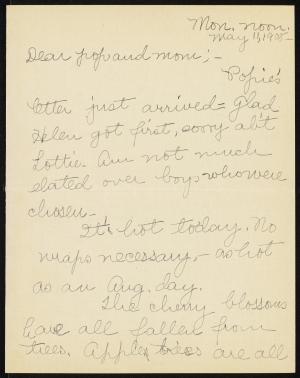 Mon. noon.
May 11, 1908-
Dear pop and mom;-
Popie's
letter just arrived = Glad
Helen got first, sorry ab't
Lottie. Am not much
elated over boys who were
chosen-
It's hot today. No
wraps necessary,- as hot
as an Aug. day.
The cherry blossoms
have all fallen from
trees. Apple trees are all